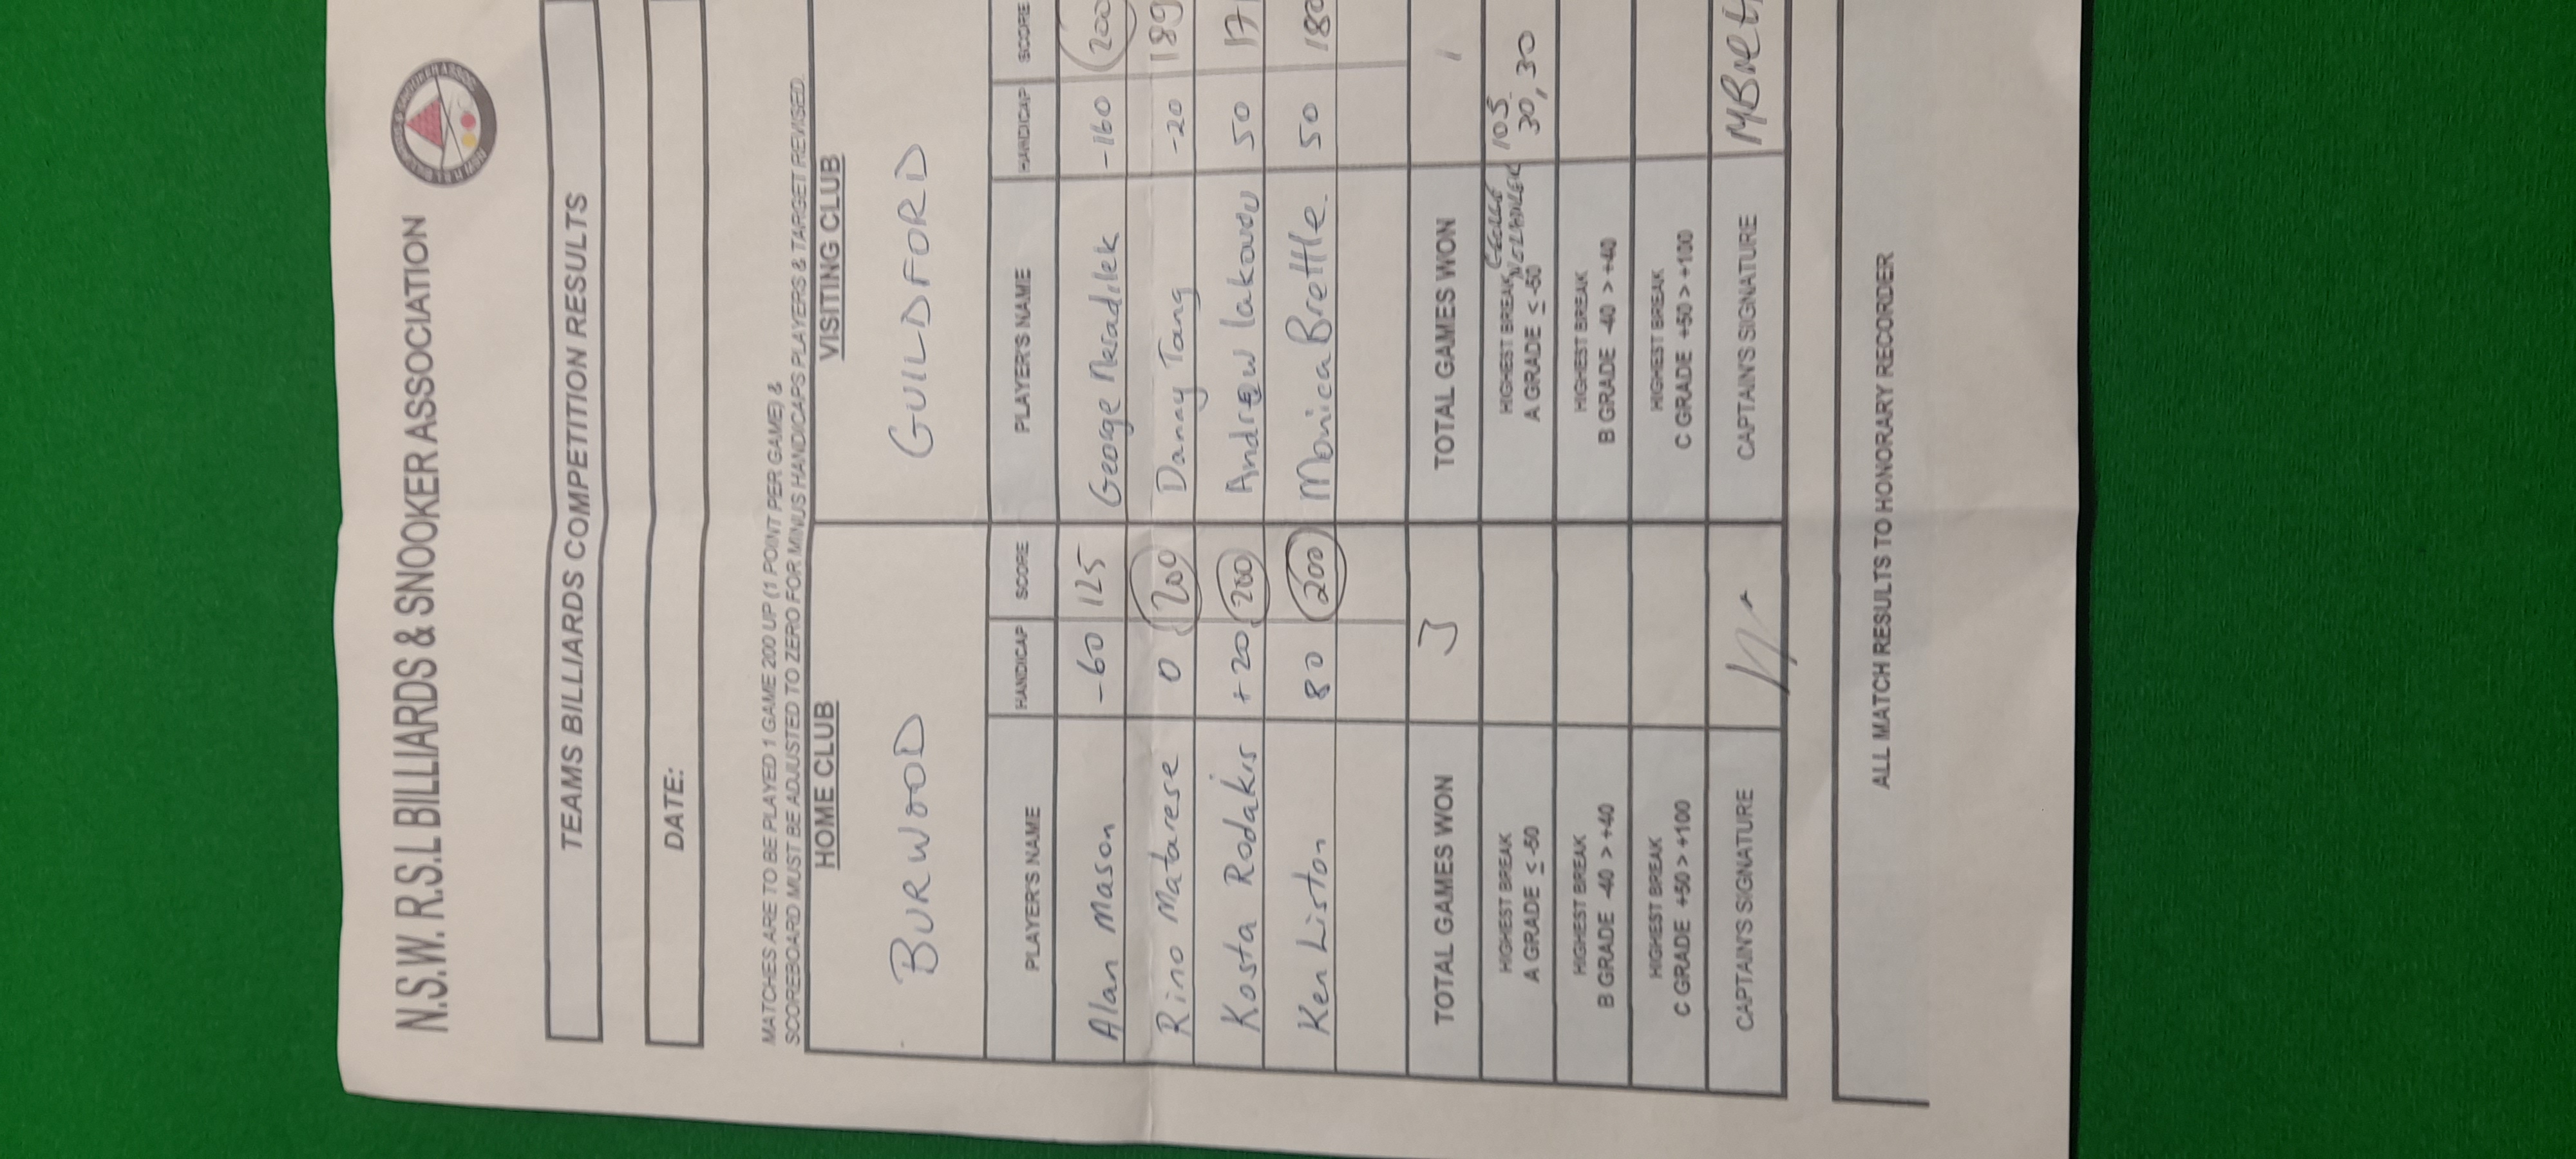 N.S.W. R.S.L BILLIARDS & SNOOKER ASSOCIATION
TEAMS BILLIARDS COMPETITION RESULTS
DATE:
MATCHES ARE TO BE PLAYED 1 GAME 200 UP (1 POINT PER GAME) &
SCOREBOARD MUST BE ADJUSTED TO ZERO FOR MINUS HANDICAPS PLAYERS & TARGET REVISED.
HOME CLUB VISITING CLUB
BURWOOD GUILDFORD
PLAYER'S NAME HANDICAP SCORE PLAYER'S NAME HANDICAP SCORE
Alan Mason -60 125 George -160 200
Rino Matarese 0 200 Danny Tang -20 189
Kosta Rodakis +20 200 Andrew 50 17
Ken Liston 80 200 Monica Brettle 50 180
TOTAL GAMES WON 3 TOTAL GAMES WON 1
HIGHEST BREAK HIGHEST BREAK 105
A GRADE ≤ -50 A GRADE ≤ -50 30, 30
HIGHEST BREAK HIGHEST BREAK
B GRADE -40 > +40 B GRADE -40 > +40
HIGHEST BREAK HIGHEST BREAK
C GRADE +50 > +100 C GRADE +50 > +100
CAPTAIN'S SIGNATURE CAPTAIN'S SIGNATURE MBrett
ALL MATCH RESULTS TO HONORARY RECORDER